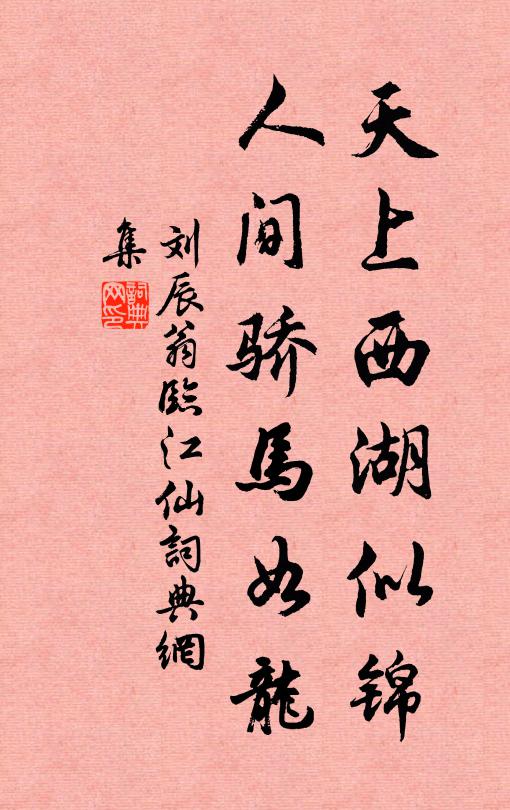 天上西湖似锦
人间骄馬如龍
刘辰翁臨江仙詞典網
集
詞典網印